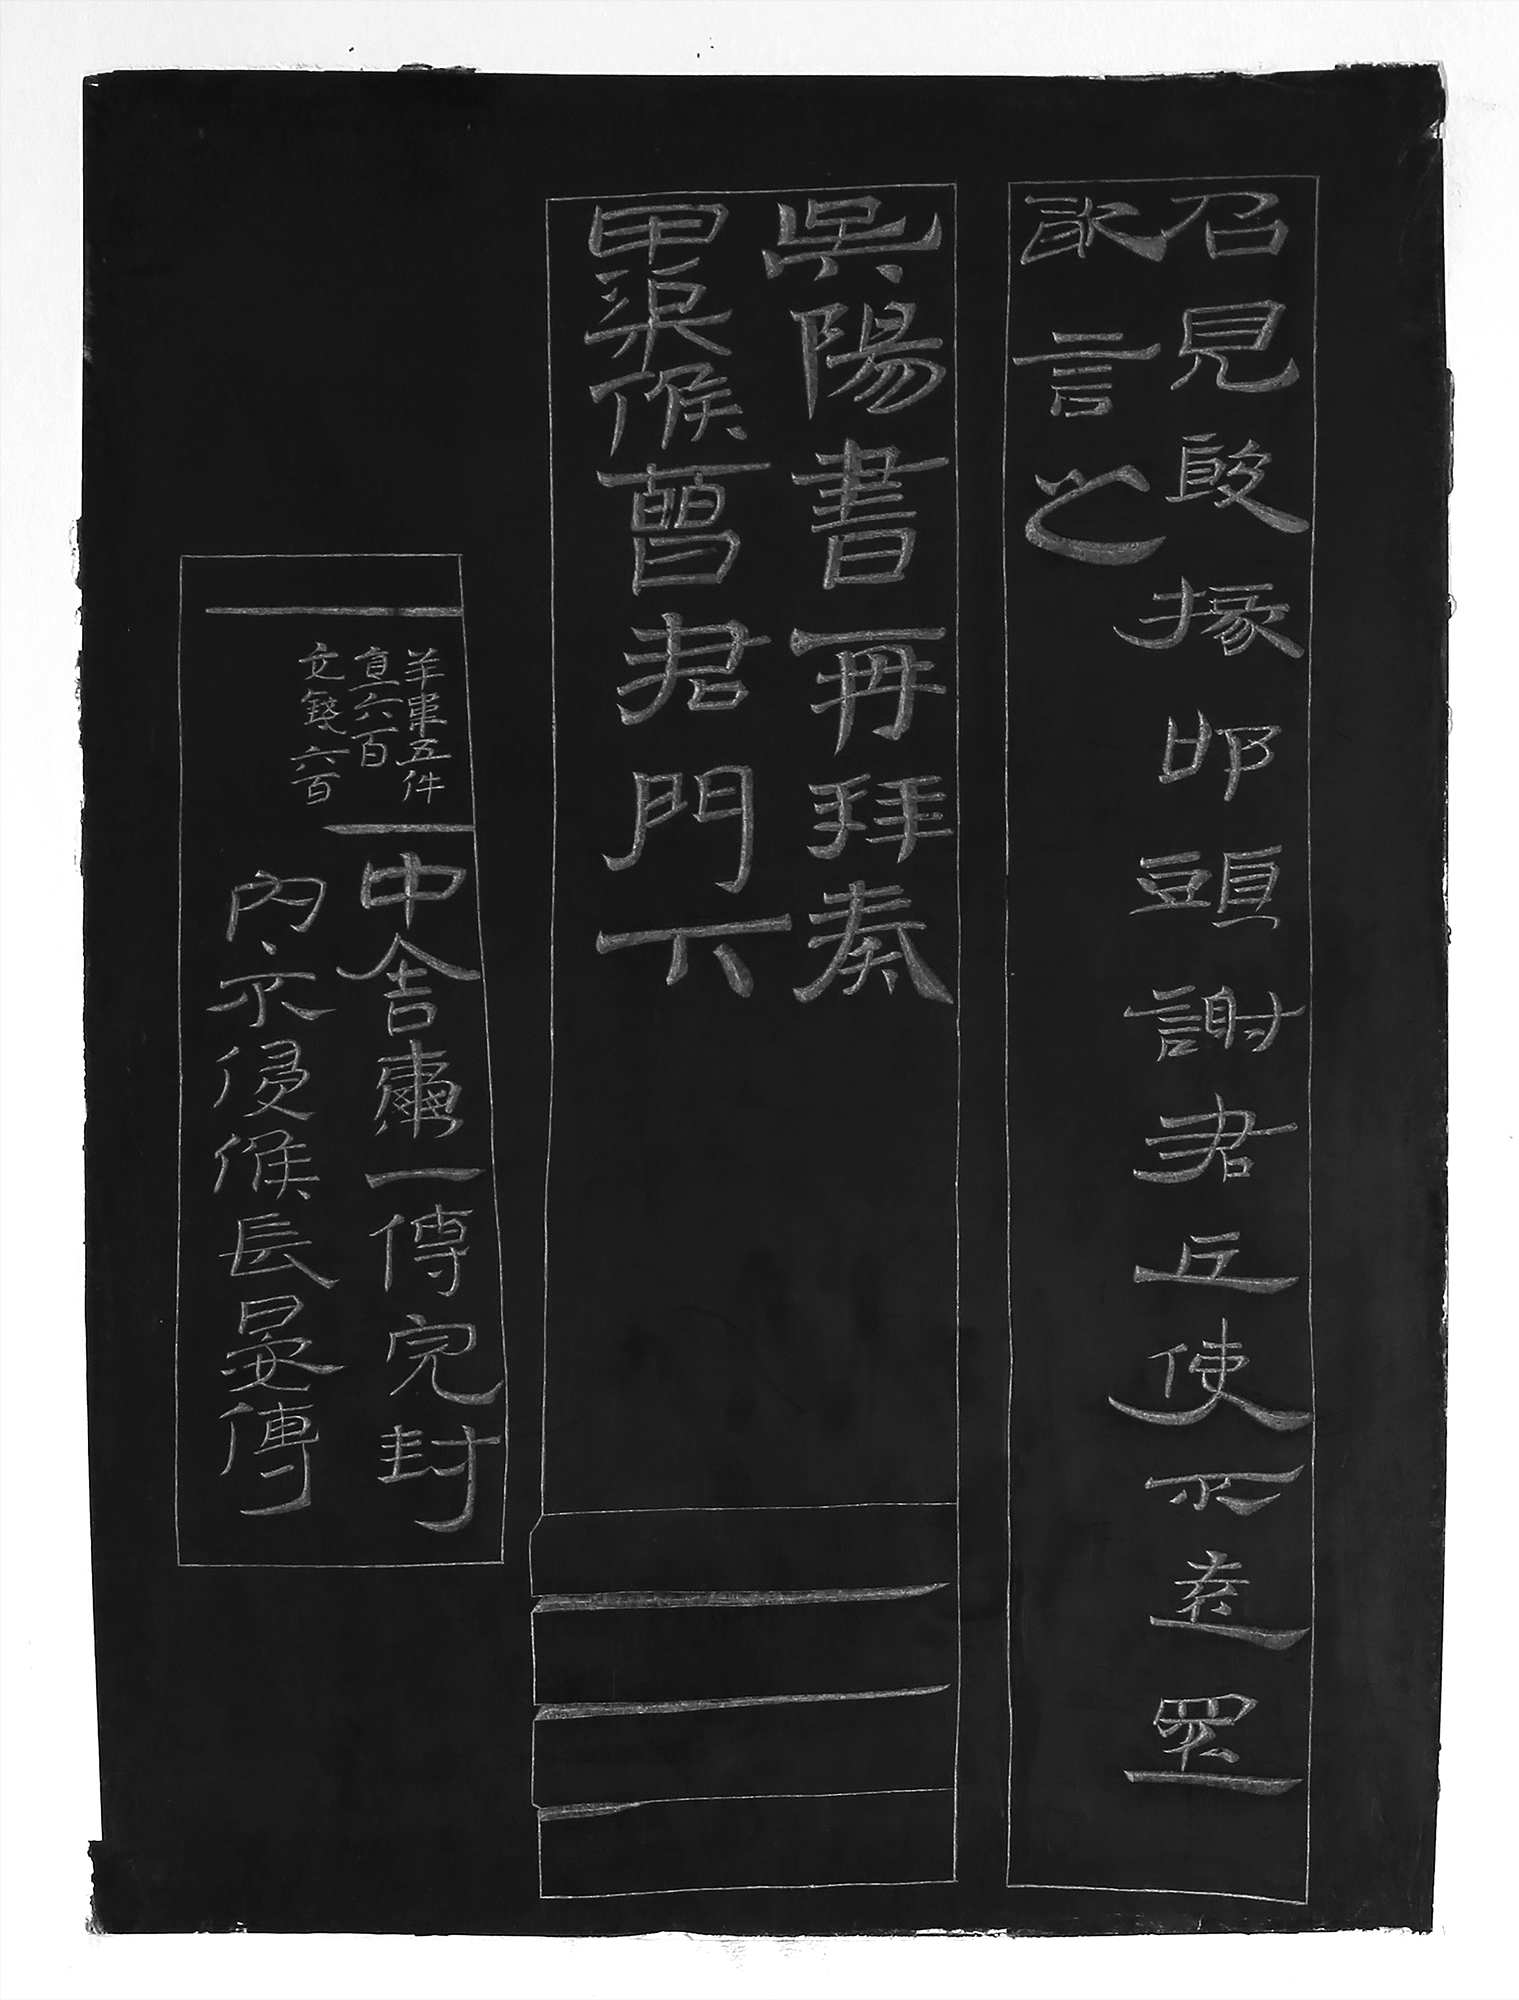 召見段掾叩頭謝君丘使不意
敢言之
吳陽書再拜奏
甲渠候曹君門下
羊韋五件
直六百
交錢六百
中舍囊一傳完封
內不侵候長晏傳